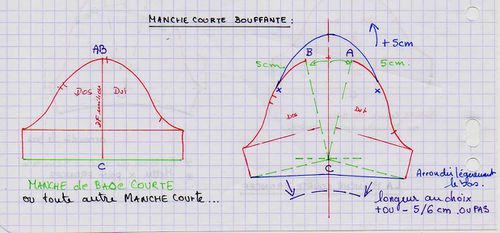 MANCHE COURTE BOUFFANTE :
+5cm
AB
B
A
5cm
5cm
x
x
Dos
Dvt
Dos
Dvt
C
C
MANCHE de BASE COURTE
ou toute autre MANCHE Courte...
Arrondir légèrement
le bas.
longueur au choix
+ou - 5/6 cm ou PAS